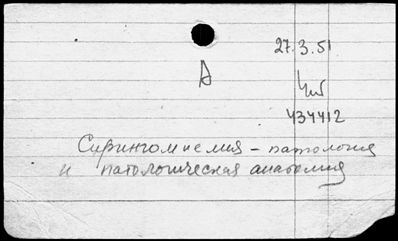 27.3.51
А
434412
Сирингомиелия - патология
и патологическая анатомия